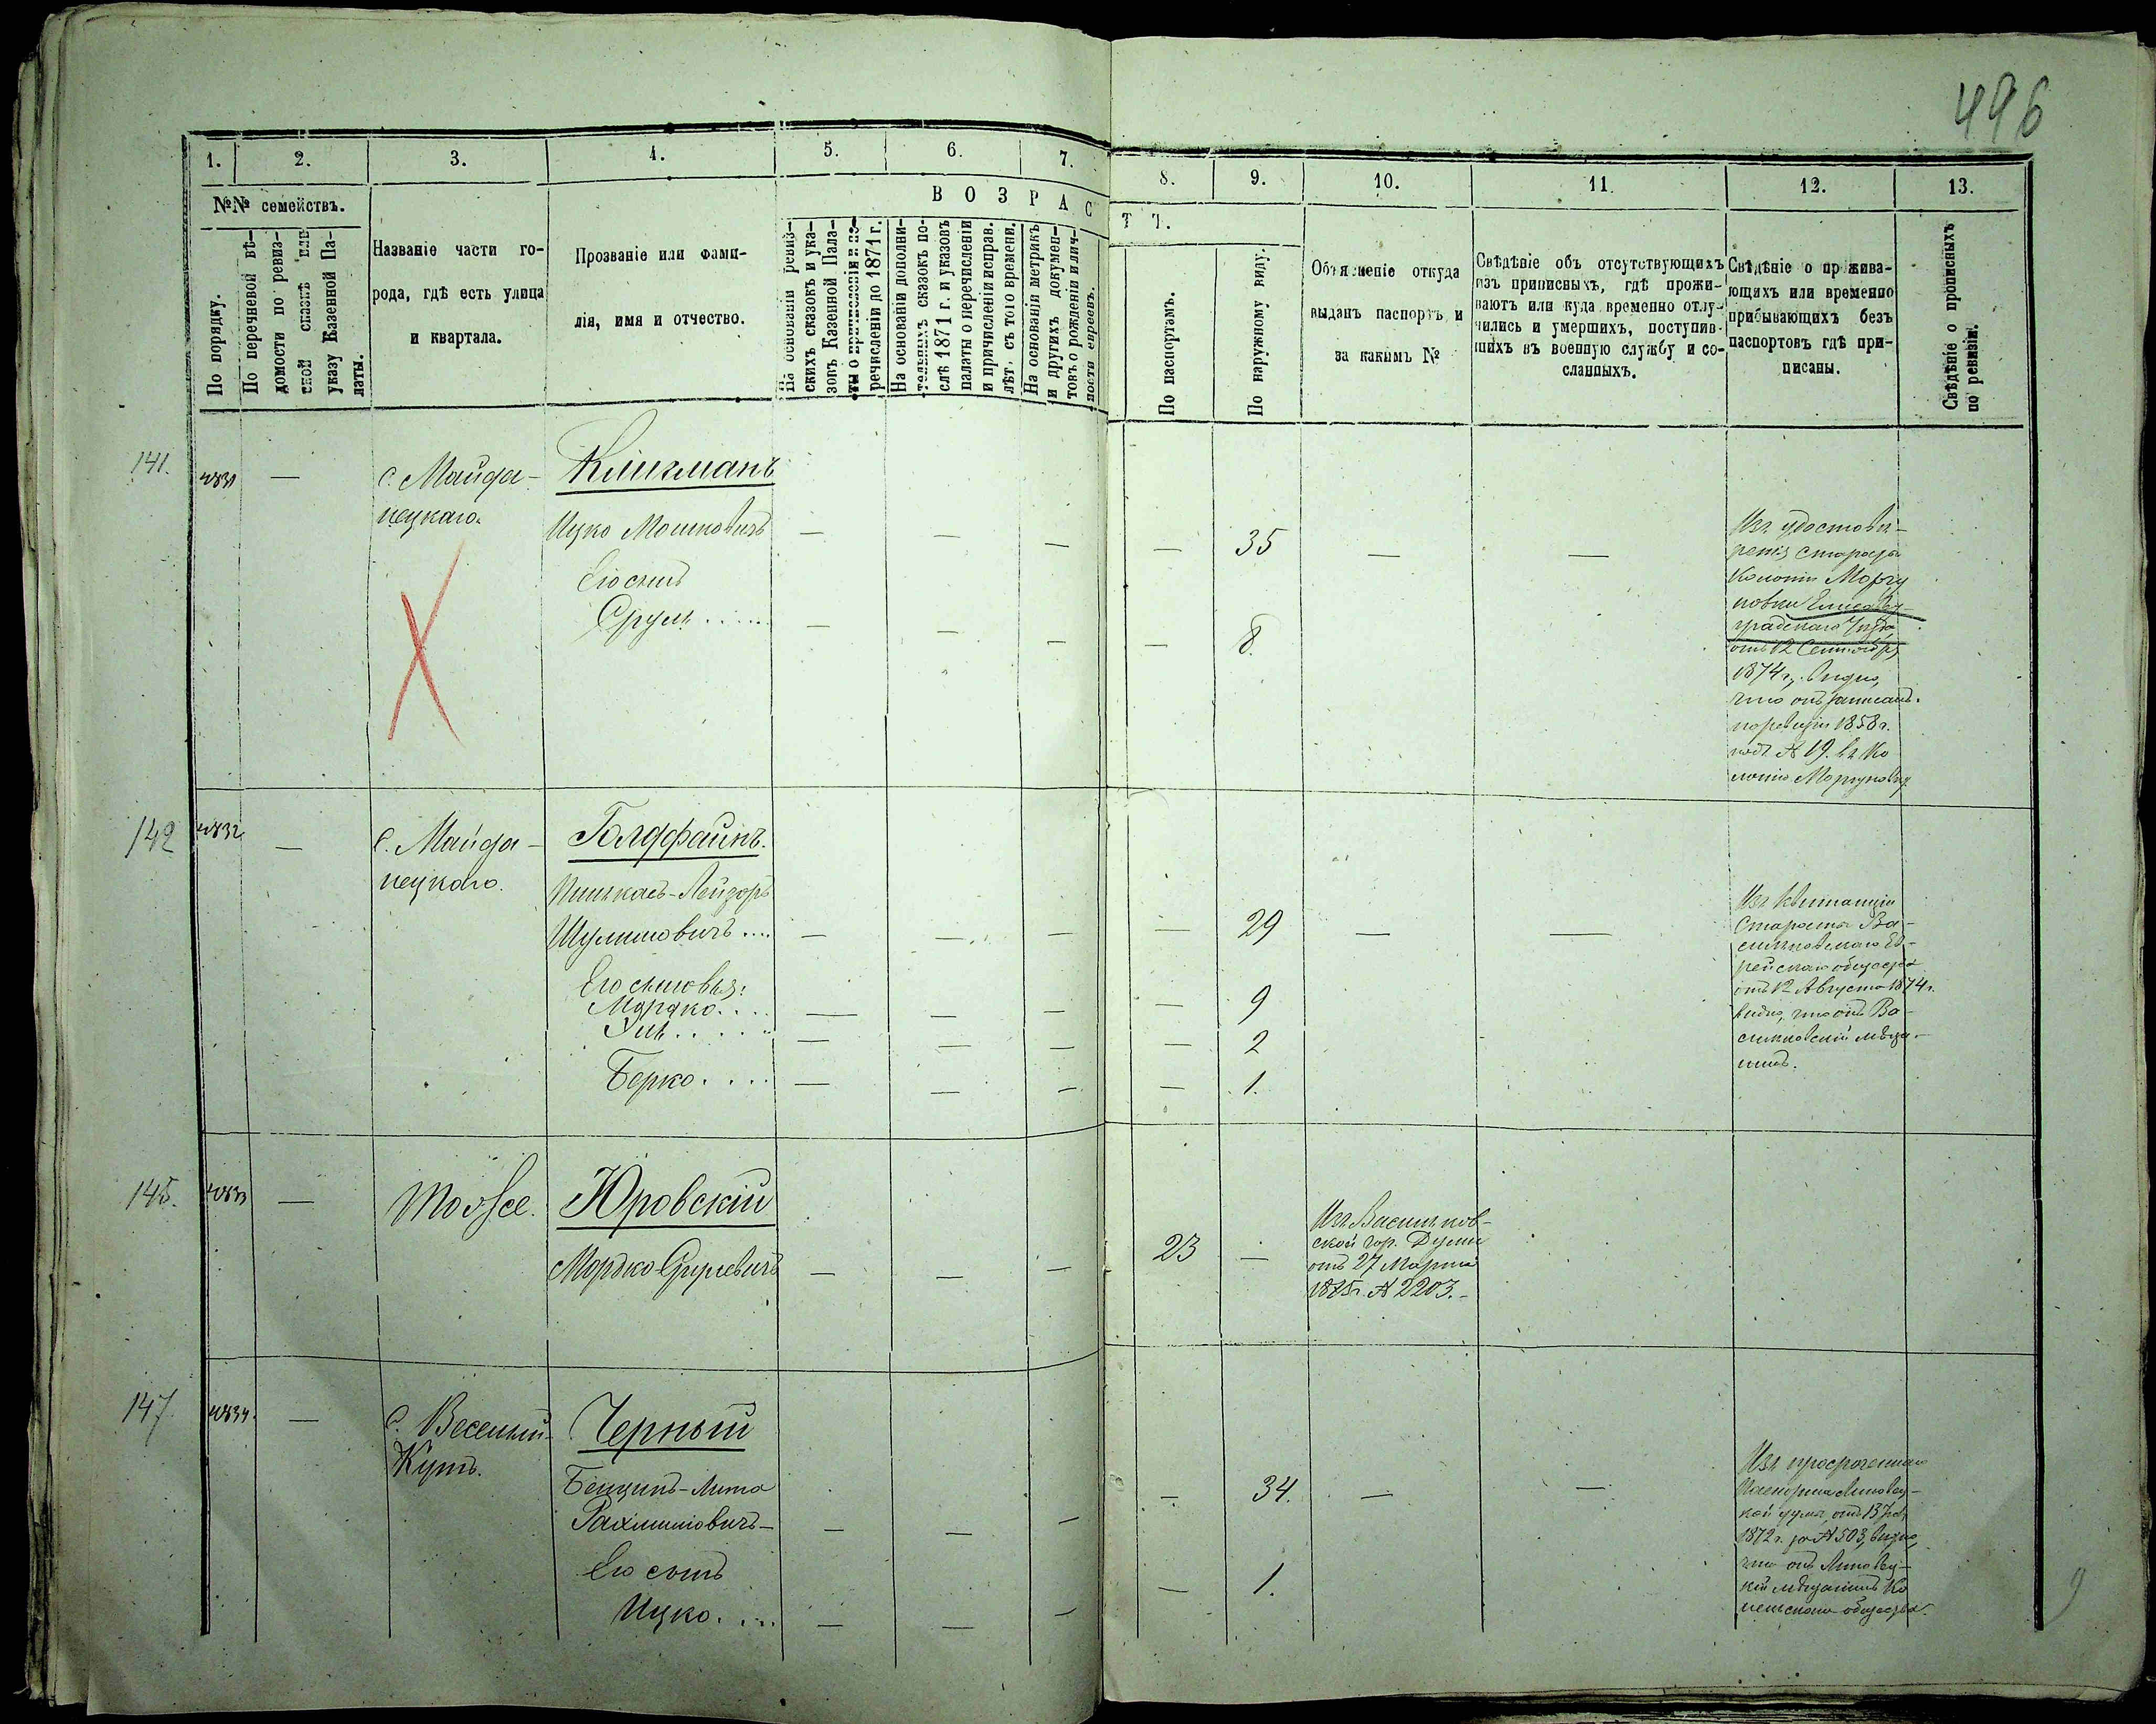 496
1. 2. 3. 4. 5. 6. 7. 8. 9. 10. 11. 12. 13.
№№ семействъ.
По порядку.
По перечневой вѣ-
домости по ревиз-
ской сказкѣ или
указу Казенной Па-
латы.
Названіе части го-
рода, гдѣ есть улица
и квартала.
Прозваніе или фами-
лія, имя и отчество.
ВОЗРАСТЪ.
На основаніи ревиз-
скихъ сказокъ и ука-
зовъ Казенной Пала-
ты о причисленіи и пе-
речисленіи до 1871 г.
На основаніи дополни-
тельныхъ сказокъ по-
слѣ 1871 г. и указовъ
палаты о перечисленіи
и причисленіи исправ.
лѣт. съ того времени.
На основаніи метрикъ
и другихъ докумен-
товъ о рожденіи и лич-
ности евреевъ.
По паспортамъ.
По наружному виду.
Объясненіе откуда
выданъ паспортъ и
за какимъ №
Свѣдѣніе объ отсутствующихъ
изъ приписныхъ, гдѣ прожи-
ваютъ или куда временно отлу-
чились и умершихъ, поступив-
шихъ въ военную службу и со-
сланныхъ.
Свѣдѣніе о прожива-
ющихъ или временно
прибывающихъ безъ
паспортовъ гдѣ при-
писаны.
Свѣдѣніе о прописныхъ
по ревизіи.
141. — с. Майда-
нецкаго.
Клигманъ
Ицко Мошковичъ — — — — 35 — —
Его сынъ
Срулъ ..... — — — — 8.
Изъ удостовѣ-
ренія Старосты
Колоніи Моргу
новки Елисавет-
градскаго Уѣзда
отъ 12 Сентября
1874 г. видно,
что онъ записанъ
по ревизіи 1858 г.
подъ № 19. въ Ко
лоніи Моргуновку
142 — с. Майда-
нецкаго.
Голдфайнъ.
Пинькасъ-Лейзоръ
Шулимовичъ .... — — — — 29 — —
Его сыновья:
Мордко. ... — — — — 9
— — — — 2
Берко. ... — — — — 1.
Изъ квитанціи
Старосты Ва-
сильковскаго Ев-
рейскаго общества
отъ 12 Августа 1874 г.
видно, что онъ Ва-
сильковскій мѣща-
нинъ.
145. — тоже.
Юровскій
Мордко Срулевичъ — — — 23 —
Изъ Васильков-
ской гор. Думы
отъ 27 Марта
1875 г. № 2203.-
147 — с. Веселый-
Кутъ.
Черный
Бенционъ-Лита
Рахмиловичъ — — — — — 34. — —
Его сынъ
Ицко. ... — — — — 1.
Изъ просроченнаго
паспорта Липовец-
кой думы, отъ 13
1872 г. за № 503, видно,
что онъ Липовец-
кій мѣщанинъ
общества.
9